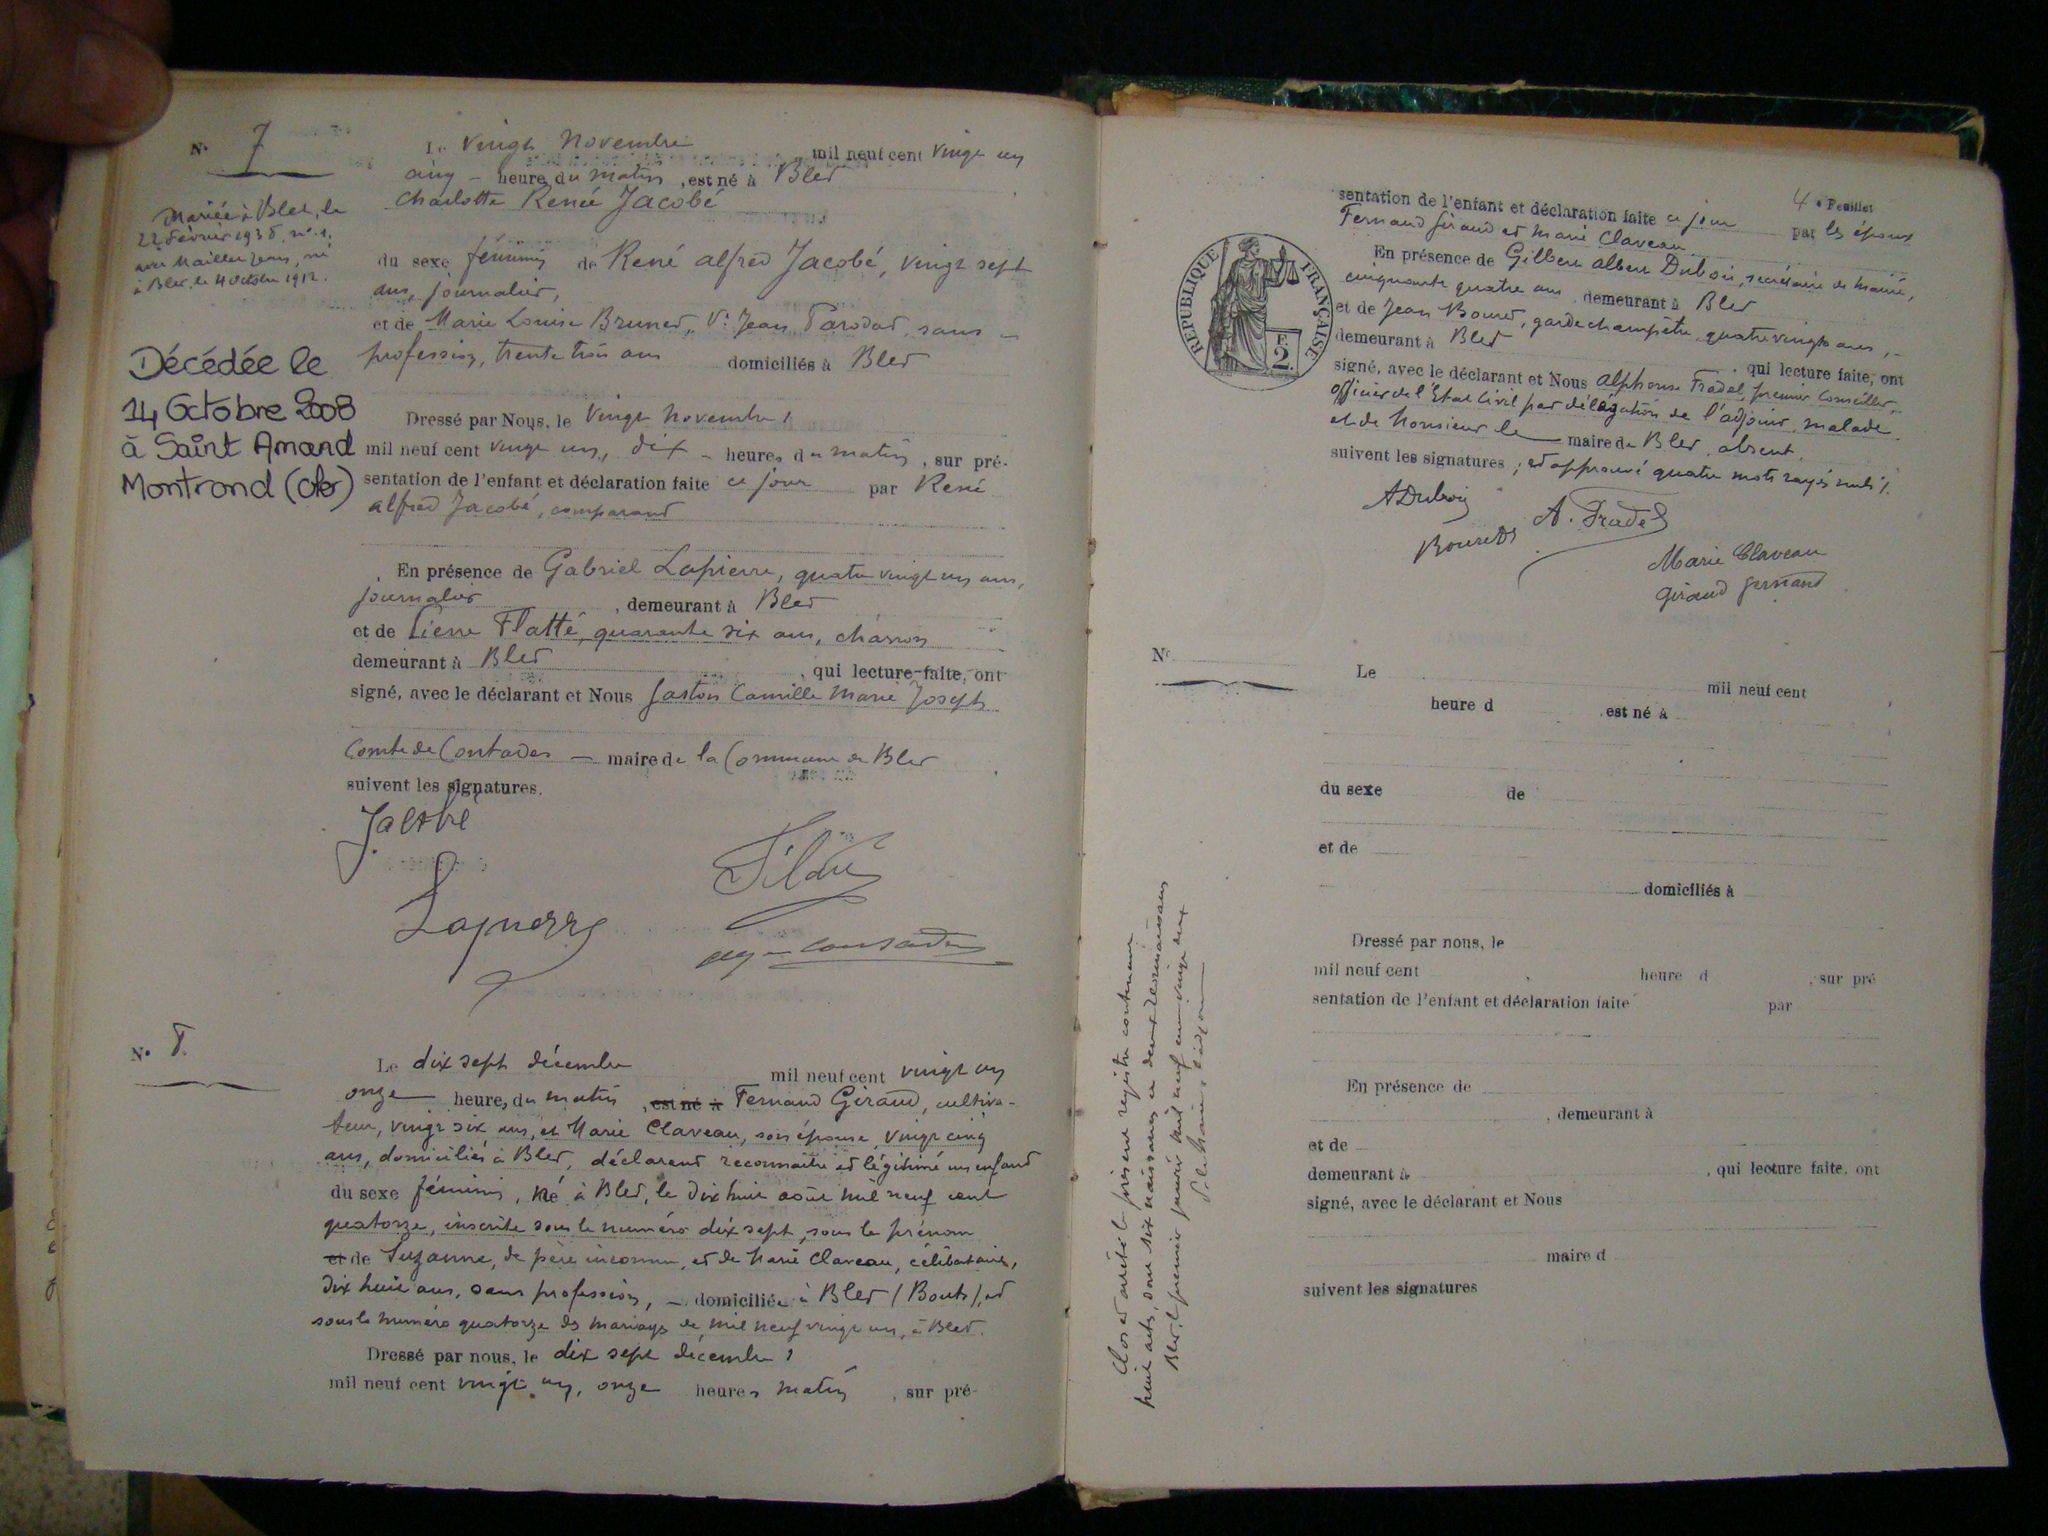 N° 7
Le vingt Novembre mil neuf cent vingt un
cinq heure du matin, est né à Blet
Charlotte Renée Jacobé
du sexe féminin de René Alfred Jacobé, vingt sept
ans, journalier,
et de Marie Louise Brunet, Ve Jean sans
profession, trente trois ans domiciliés à Blet
Dressé par Nous, le vingt Novembre
mil neuf cent vingt un, dix heures du matin, sur pré-
sentation de l'enfant et déclaration faite ce jour par René
Alfred Jacobé, comparant
En présence de Gabriel Lapierre, quatre vingt un ans,
journalier, demeurant à Blet
et de Pierre Flatté, quarante six ans, charron
demeurant à Blet, qui lecture faite, ont
signé, avec le déclarant et Nous Gaston Camille Marie Joseph
Comte de Contades maire de la Commune de Blet
suivent les signatures.
Jacobé
Lapierre
Mariée à Blet, le
22 Février 1938, n° 1,
avec Maillet Jean, né
à Blet, le 4 octobre 1912.
Décédée le
14 Octobre 2008
à Saint Amand
Montrond (Cher)
N° 8.
Le dix sept décembre mil neuf cent vingt un
onze heures du matin, est né à Fernand Giraud, cultiva-
teur, vingt six ans, et Marie Claveau, son épouse, vingt cinq
ans, domiciliés à Blet, déclarent reconnaitre et légitimé un enfant
du sexe féminin, né à Blet, le dix huit août mil neuf cent
quatorze, inscrite sous le numéro dix sept, sous le prénom
et de Suzanne, de père inconnu, et de Marie Claveau, célibataire,
dix huit ans, sans profession, domiciliée à Blet (Bouts), et
sous le numéro quatorze des mariages de mil neuf vingt un, à Blet.
Dressé par nous, le dix sept décembre
mil neuf cent vingt un, onze heures matin, sur pré-
4e Feuillet
sentation de l'enfant et déclaration faite ce jour par les époux
Fernand Giraud et Marie Claveau
En présence de Gilbert Albert Dubois, secrétaire de mairie,
cinquante quatre ans, demeurant à Blet
et de Jean Bouret, garde champêtre, quatre vingts ans,
demeurant à Blet, qui lecture faite, ont
signé, avec le déclarant et Nous Alphonse Fradel, premier Conseiller,
officier de l'Etat Civil par délégation de l'adjoint, malade
et de Monsieur le maire de Blet, absent
suivent les signatures; et approuvé quatre mots rayés nuls.
RÉPUBLIQUE FRANÇAISE
F.
2.
ADubois
Bouret
A. Fradel
Marie Claveau
Giraud Fernand
N°
Le mil neuf cent
heure d est né à
du sexe de
et de
domiciliés à
Dressé par nous, le
mil neuf cent, heure d, sur pré
sentation de l'enfant et déclaration faite par
En présence de
, demeurant à
et de
demeurant à, qui lecture faite, ont
signé, avec le déclarant et Nous
maire d
suivent les signatures
Clos et arrêté le présent registre contenant
huit actes, dont six naissances et deux reconnaissances
Blet, le premier janvier mil neuf cent vingt deux
P. le Maire, l'adjoint